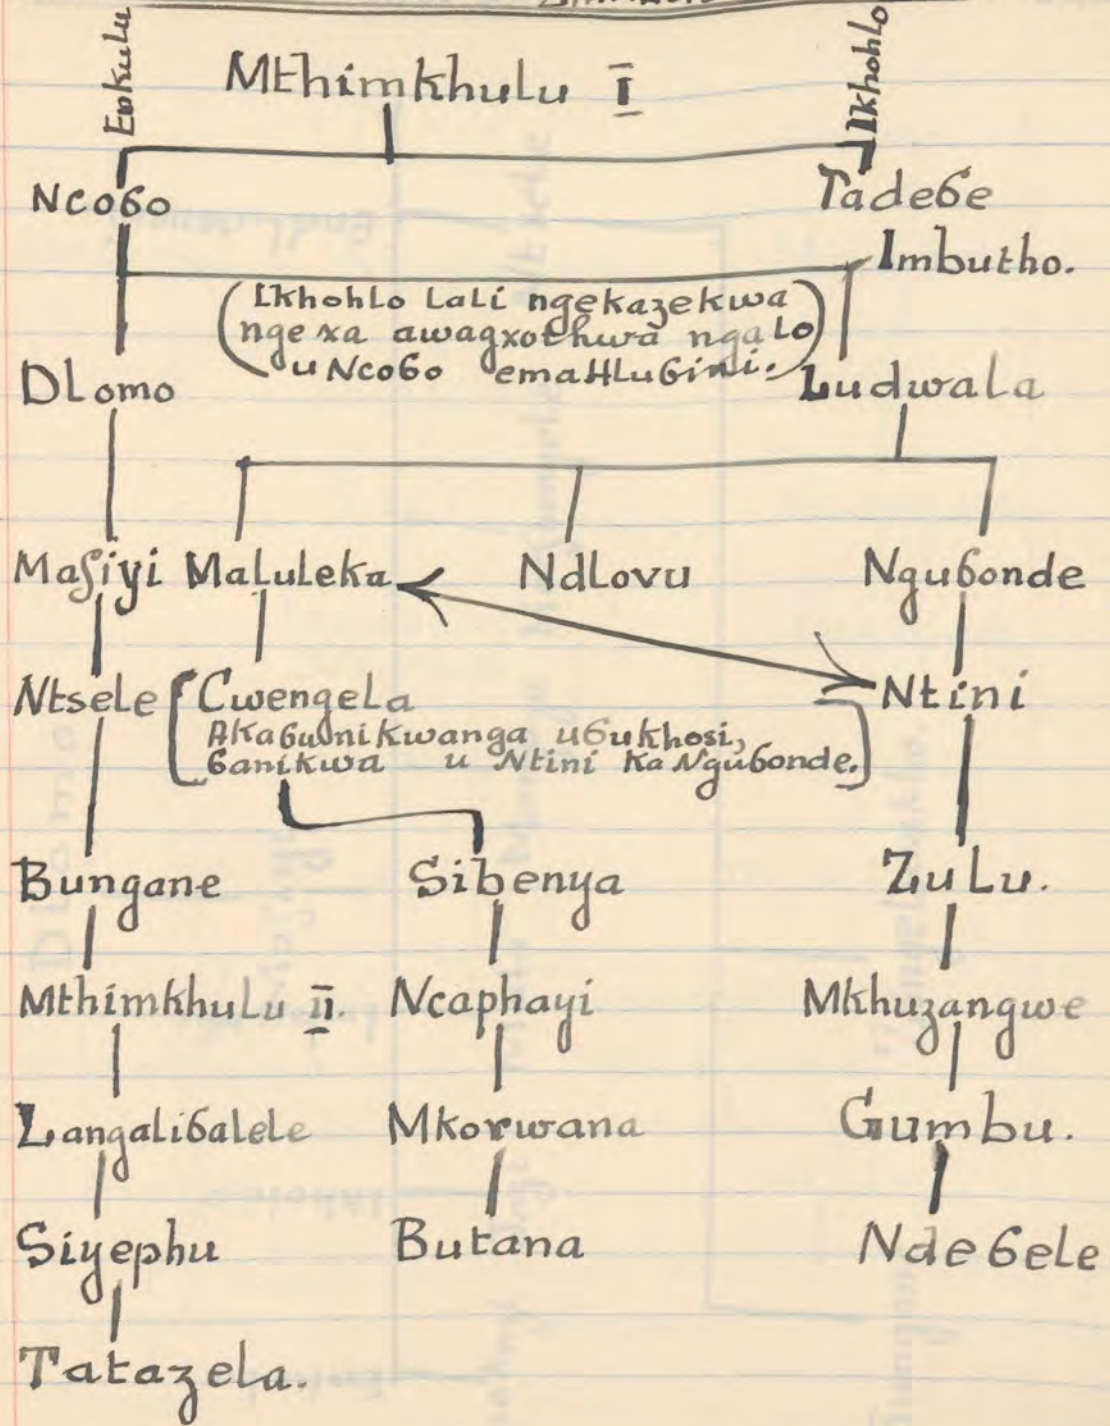 Enkulu
Ikhohlo
Mthimkhulu I
Ncoɓo
Tadeɓe
Imbutho.
(Ikhohlo lali ngekazekwa
ngexa awagxothwa ngalo
u Ncoɓo emaHluɓini.)
Dlomo
Ludwala
Masiyi Maluleka Ndlovu Nguɓonde
Ntsele [Cwengela Ntini
Akaɓunikwanga uɓukhosi,
ɓanikwa u Ntini ka Nguɓonde.]
Bungane Sibenya Zulu.
Mthimkhulu II. Ncaphayi Mkhuzangwe
Langaliɓalele Mkorwana Gumbu.
Siyephu Butana Ndeɓele
Tatazela.